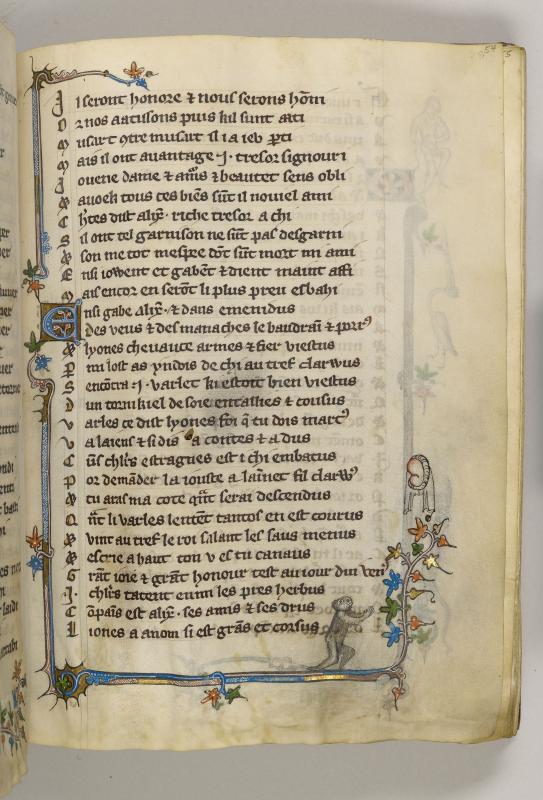 I l seront honore ⁊ nous serons hōni
O r nos aatissons puis kil sunt ati
M usart ꝯtre musart il i a ieu pti
M ais il ont auantage .i. tresor signouri
J ouene dame ⁊ amꝰs ⁊ beautet sens obli
⁊ auoek tous ces biēs sūt il nouiel ami
C hr̄es dist alix̄ . riche tresor a chi
S il ont tel garnison ne sūt pas desgarni
S on me tot mespee dōt sūt mort mi ami
E nsi iowent et gabēt ⁊ dient maint affi
M ais encor en serōt li plus preu esbahi
E nsi gabe alix̄ . ⁊ dans emenidus
Des veus ⁊ des manaches le baudrain ⁊ porrꝰ
⁊ lyones cheuauce armes ⁊ fier viestus
P mi lost as yndois de chi au tref clarwus
S encōtra .i. varlet ki estoit bien viestus
D un tornikiel de soie entallies ⁊ cousus
V arles ce dist lyones foi q̄ tu dois marcꝰ
V a laiens ⁊ si dis a contes ⁊ a dus
C ūs chlr̄s estragnes est i chi embatus
P or demāder la iouste a lainnet fil clarwꝰ
⁊ tu aras ma cote q̄nt serai descendus
Q n̄t li varles lentēt tantos en est courus
⁊ vint au tref le roi silant les saus menus
⁊ escrie a haut ton v es tu canaus
G rāt ioie ⁊ grāt honour test au iour dui venꝰ
.I. chlr̄s tatent enmi les pres herbus
C ōpains est alix̄ . ses amis ⁊ ses drus
L iones a a nom si est grās et corsus